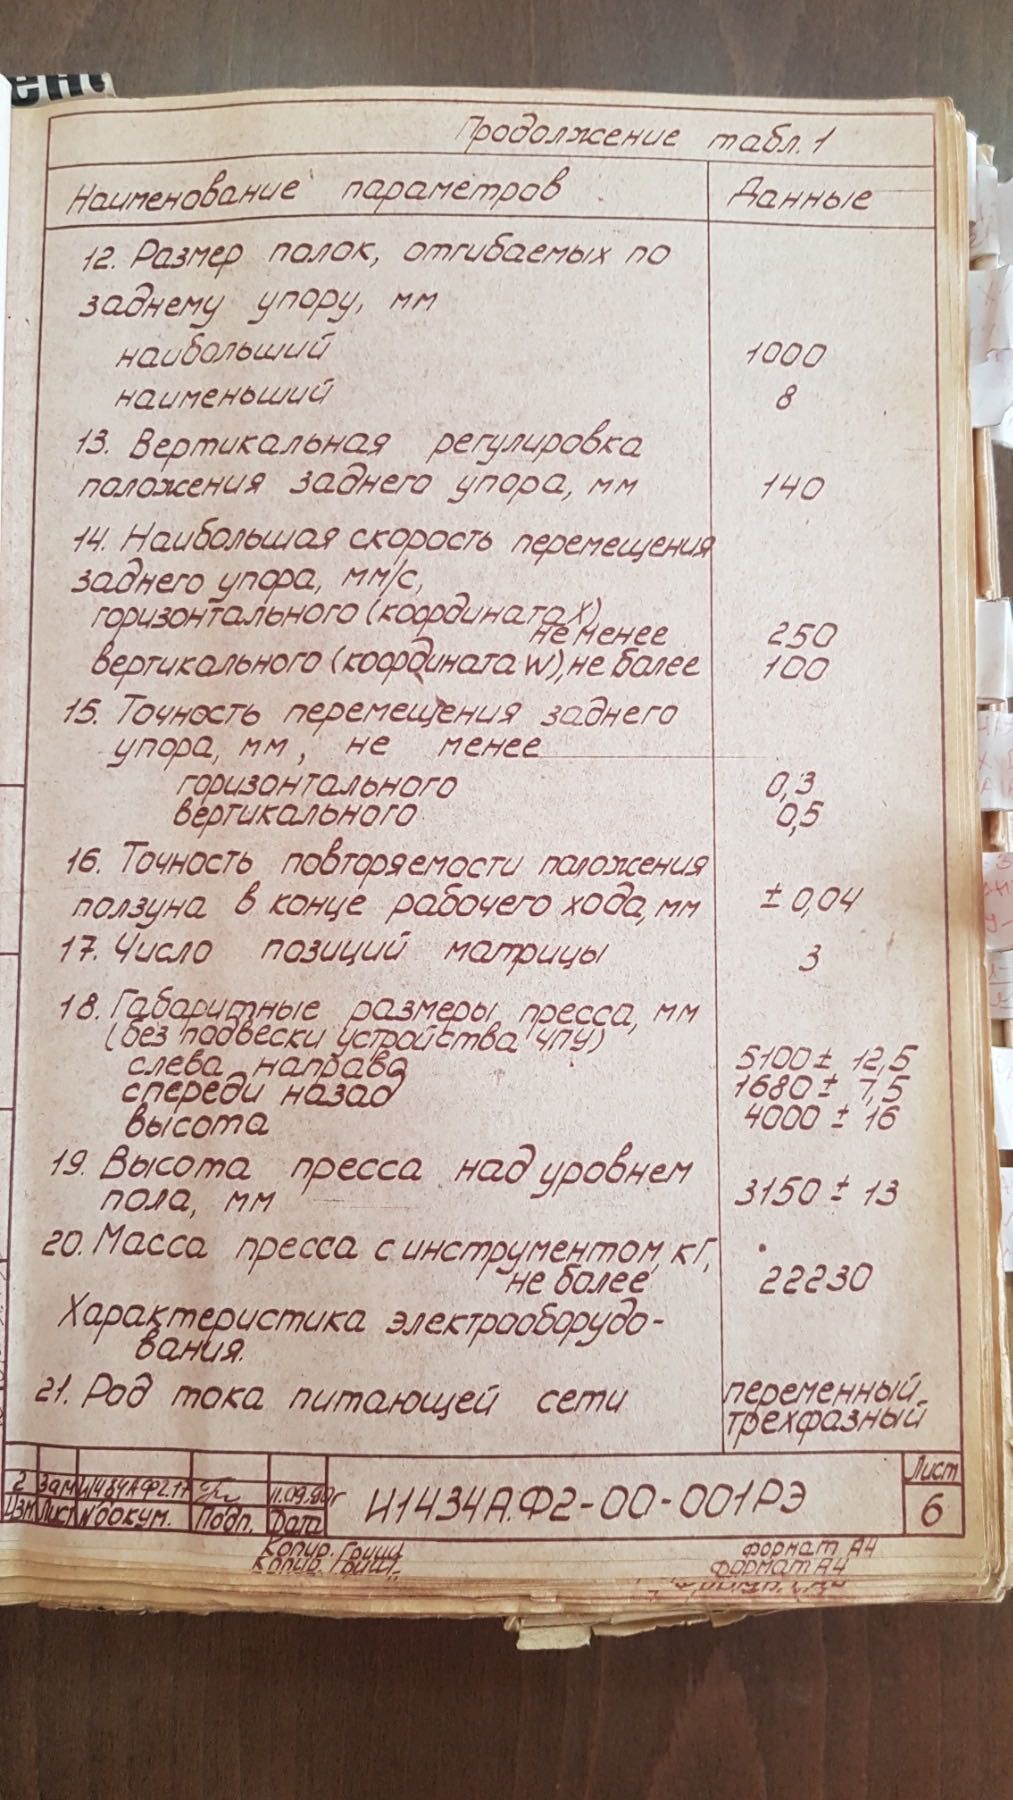 Продолжение табл.1
Наименование параметров Данные
12. Размер полок, отгибаемых по
заднему упору, мм
наибольший 1000
наименьший 8
13. Вертикальная регулировка
положения заднего упора, мм 140
14. Наибольшая скорость перемещения
заднего упора, мм/с,
горизонтального (координата X),
не менее 250
вертикального (координата W), не более 100
15. Точность перемещения заднего
упора, мм, не менее
горизонтального 0,3
вертикального 0,5
16. Точность повторяемости положения
ползуна в конце рабочего хода, мм ± 0,04
17. Число позиций матрицы 3
18. Габаритные размеры пресса, мм
(без подвески устройства ЧПУ)
слева направо 5100 ± 12,5
спереди назад 1680 ± 7,5
высота 4000 ± 16
19. Высота пресса над уровнем
пола, мм 3150 ± 13
20. Масса пресса с инструментом, кГ,
не более 22230
Характеристика электрооборудо-
вания.
21. Род тока питающей сети переменный
трехфазный
2 Зам И1434АФ2.17
Изм Лист № докум. Подп. Дата
И1434А.Ф2-00-001РЭ
Лист
6
Копир. формат А4
Копир. формат А4